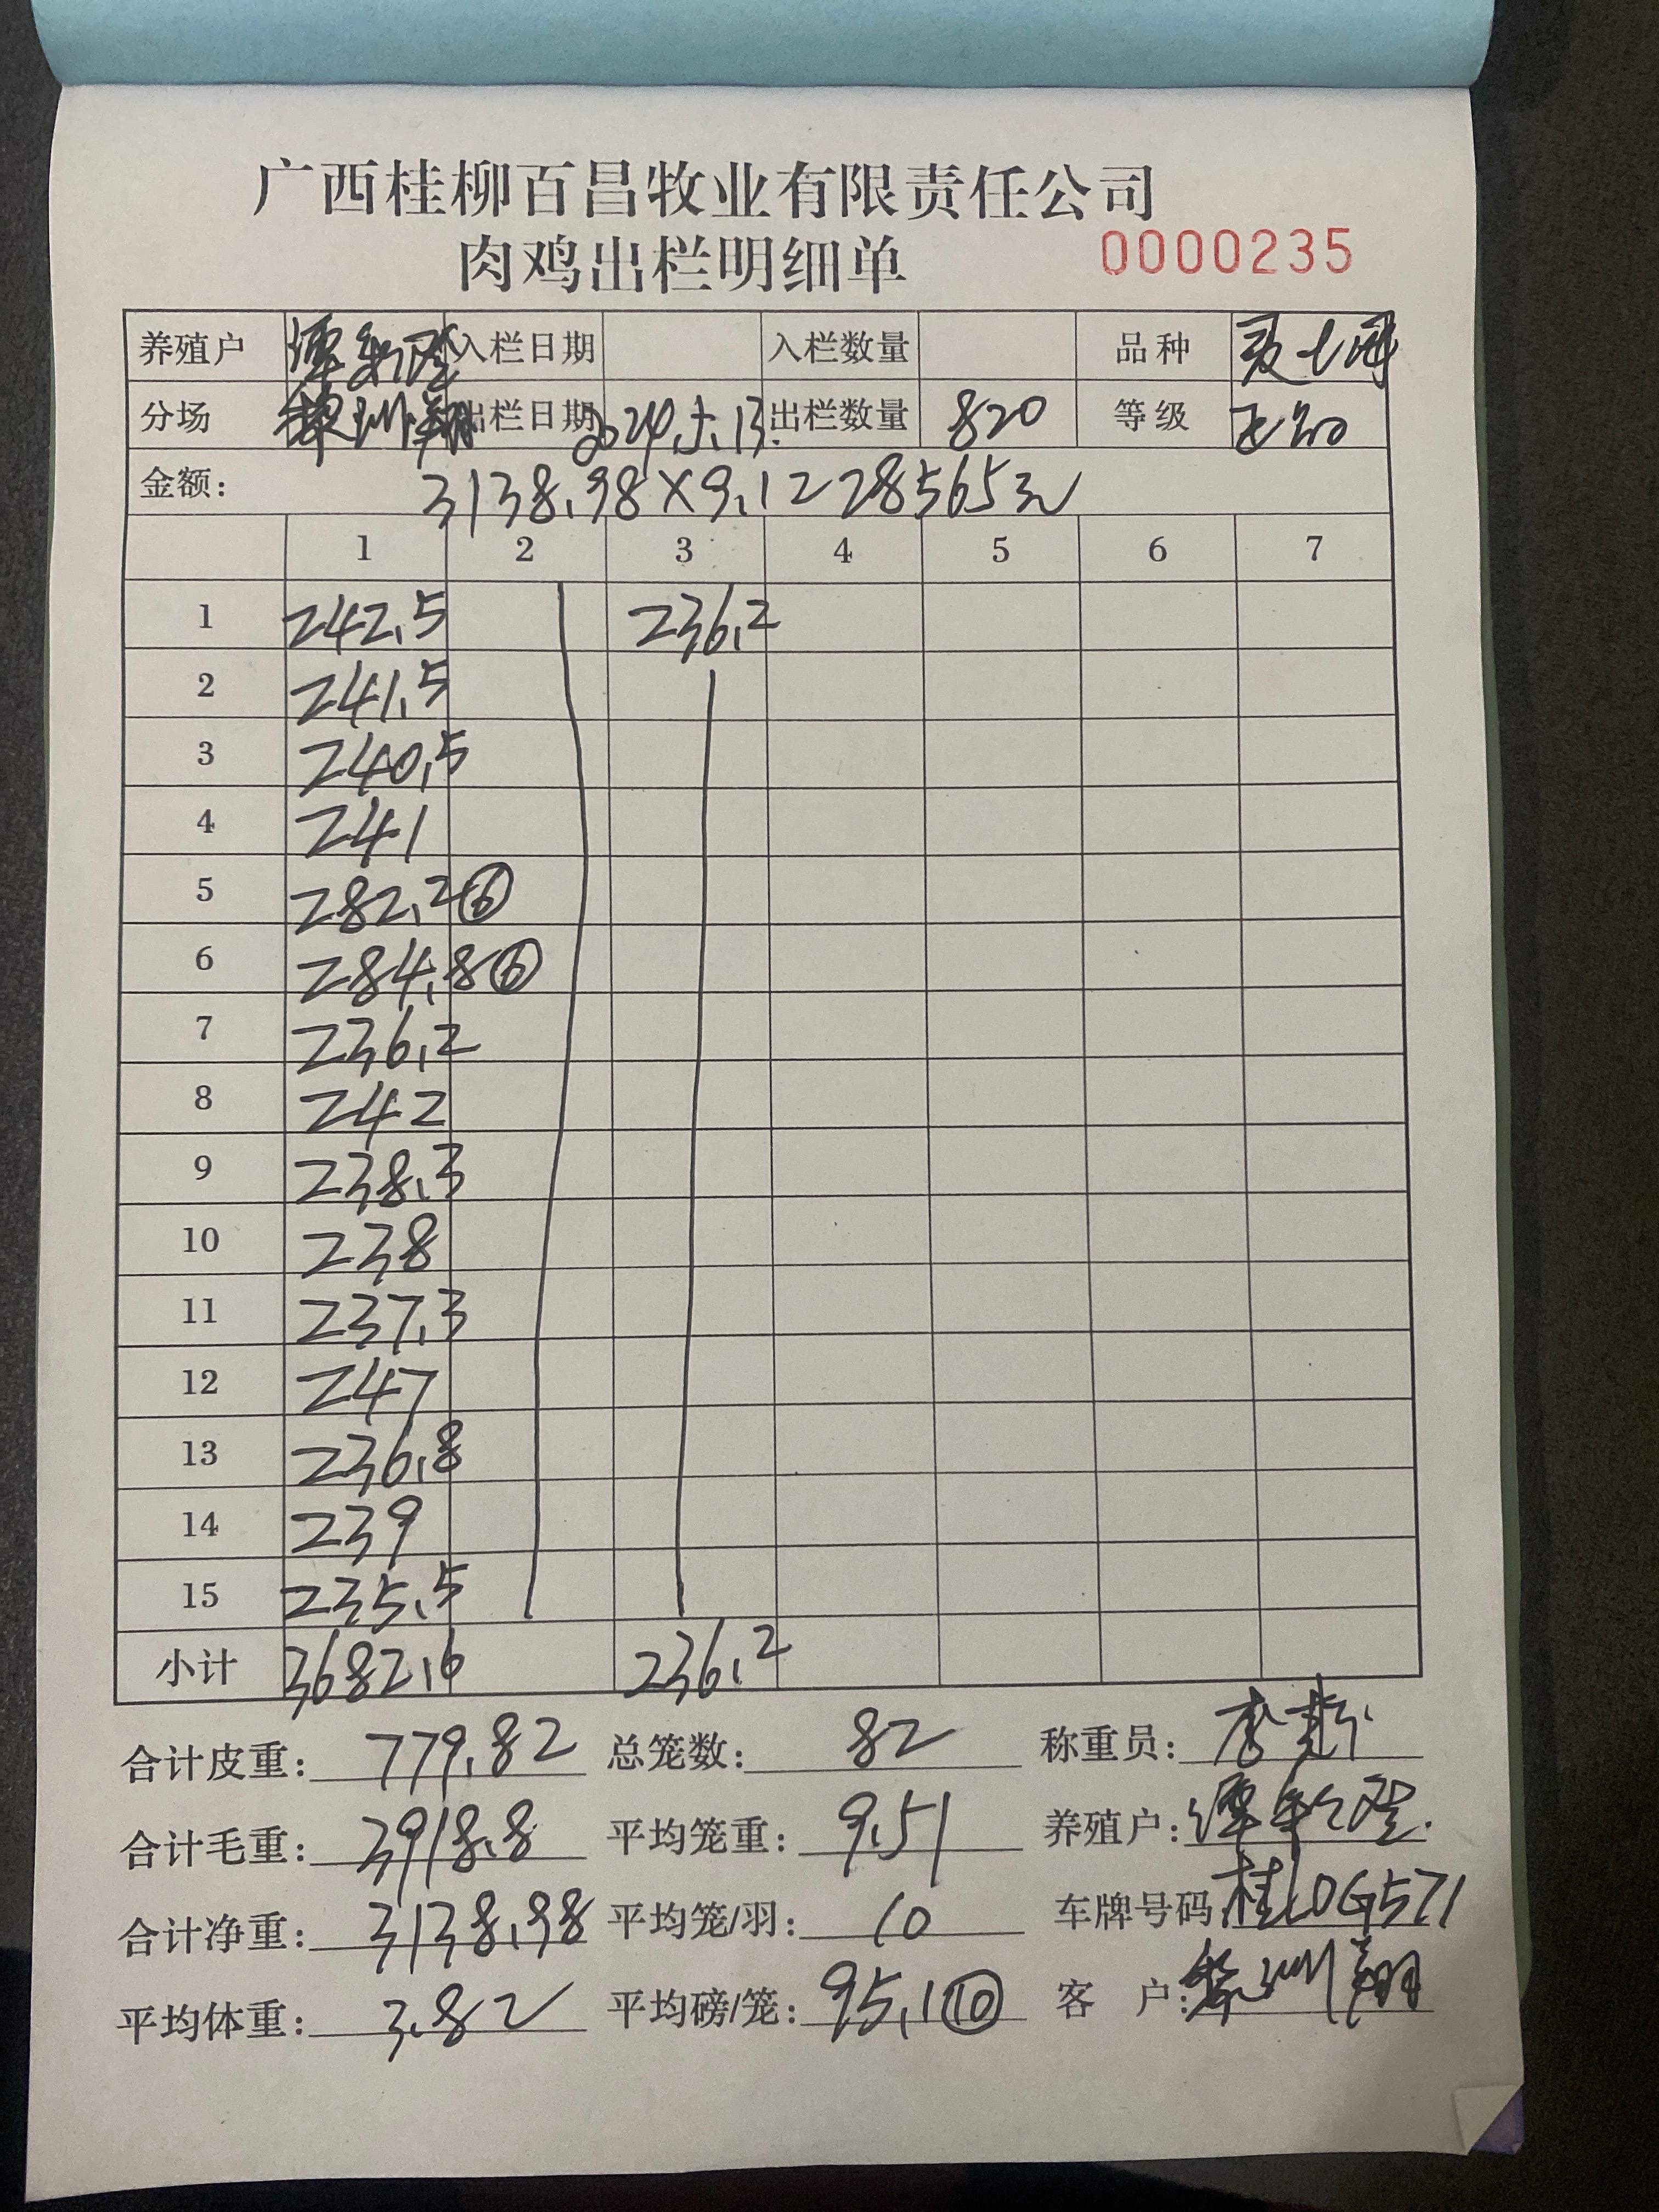 广西桂柳百昌牧业有限责任公司
肉鸡出栏明细单 0000235
养殖户 入栏日期 入栏数量 品种
分场 出栏日期 2024.5.13. 出栏数量 820 等级
金额: 3138.98×9.1 = 28565元
1 2 3 4 5 6 7
1 242.5 236.2
2 241.5
3 240.5
4 241
5 282.2⑥
6 284.8⑥
7 236.2
8 242
9 238.3
10 238
11 237.3
12 247
13 236.8
14 239
15 235.5
小计 3682.6 236.2
合计皮重: 779.82 总笼数: 82 称重员:
合计毛重: 3918.8 平均笼重: 9.51 养殖户:
合计净重: 3138.98 平均笼/羽: 10 车牌号码
平均体重: 3.82 平均磅/笼: 95.1⑩ 客 户: